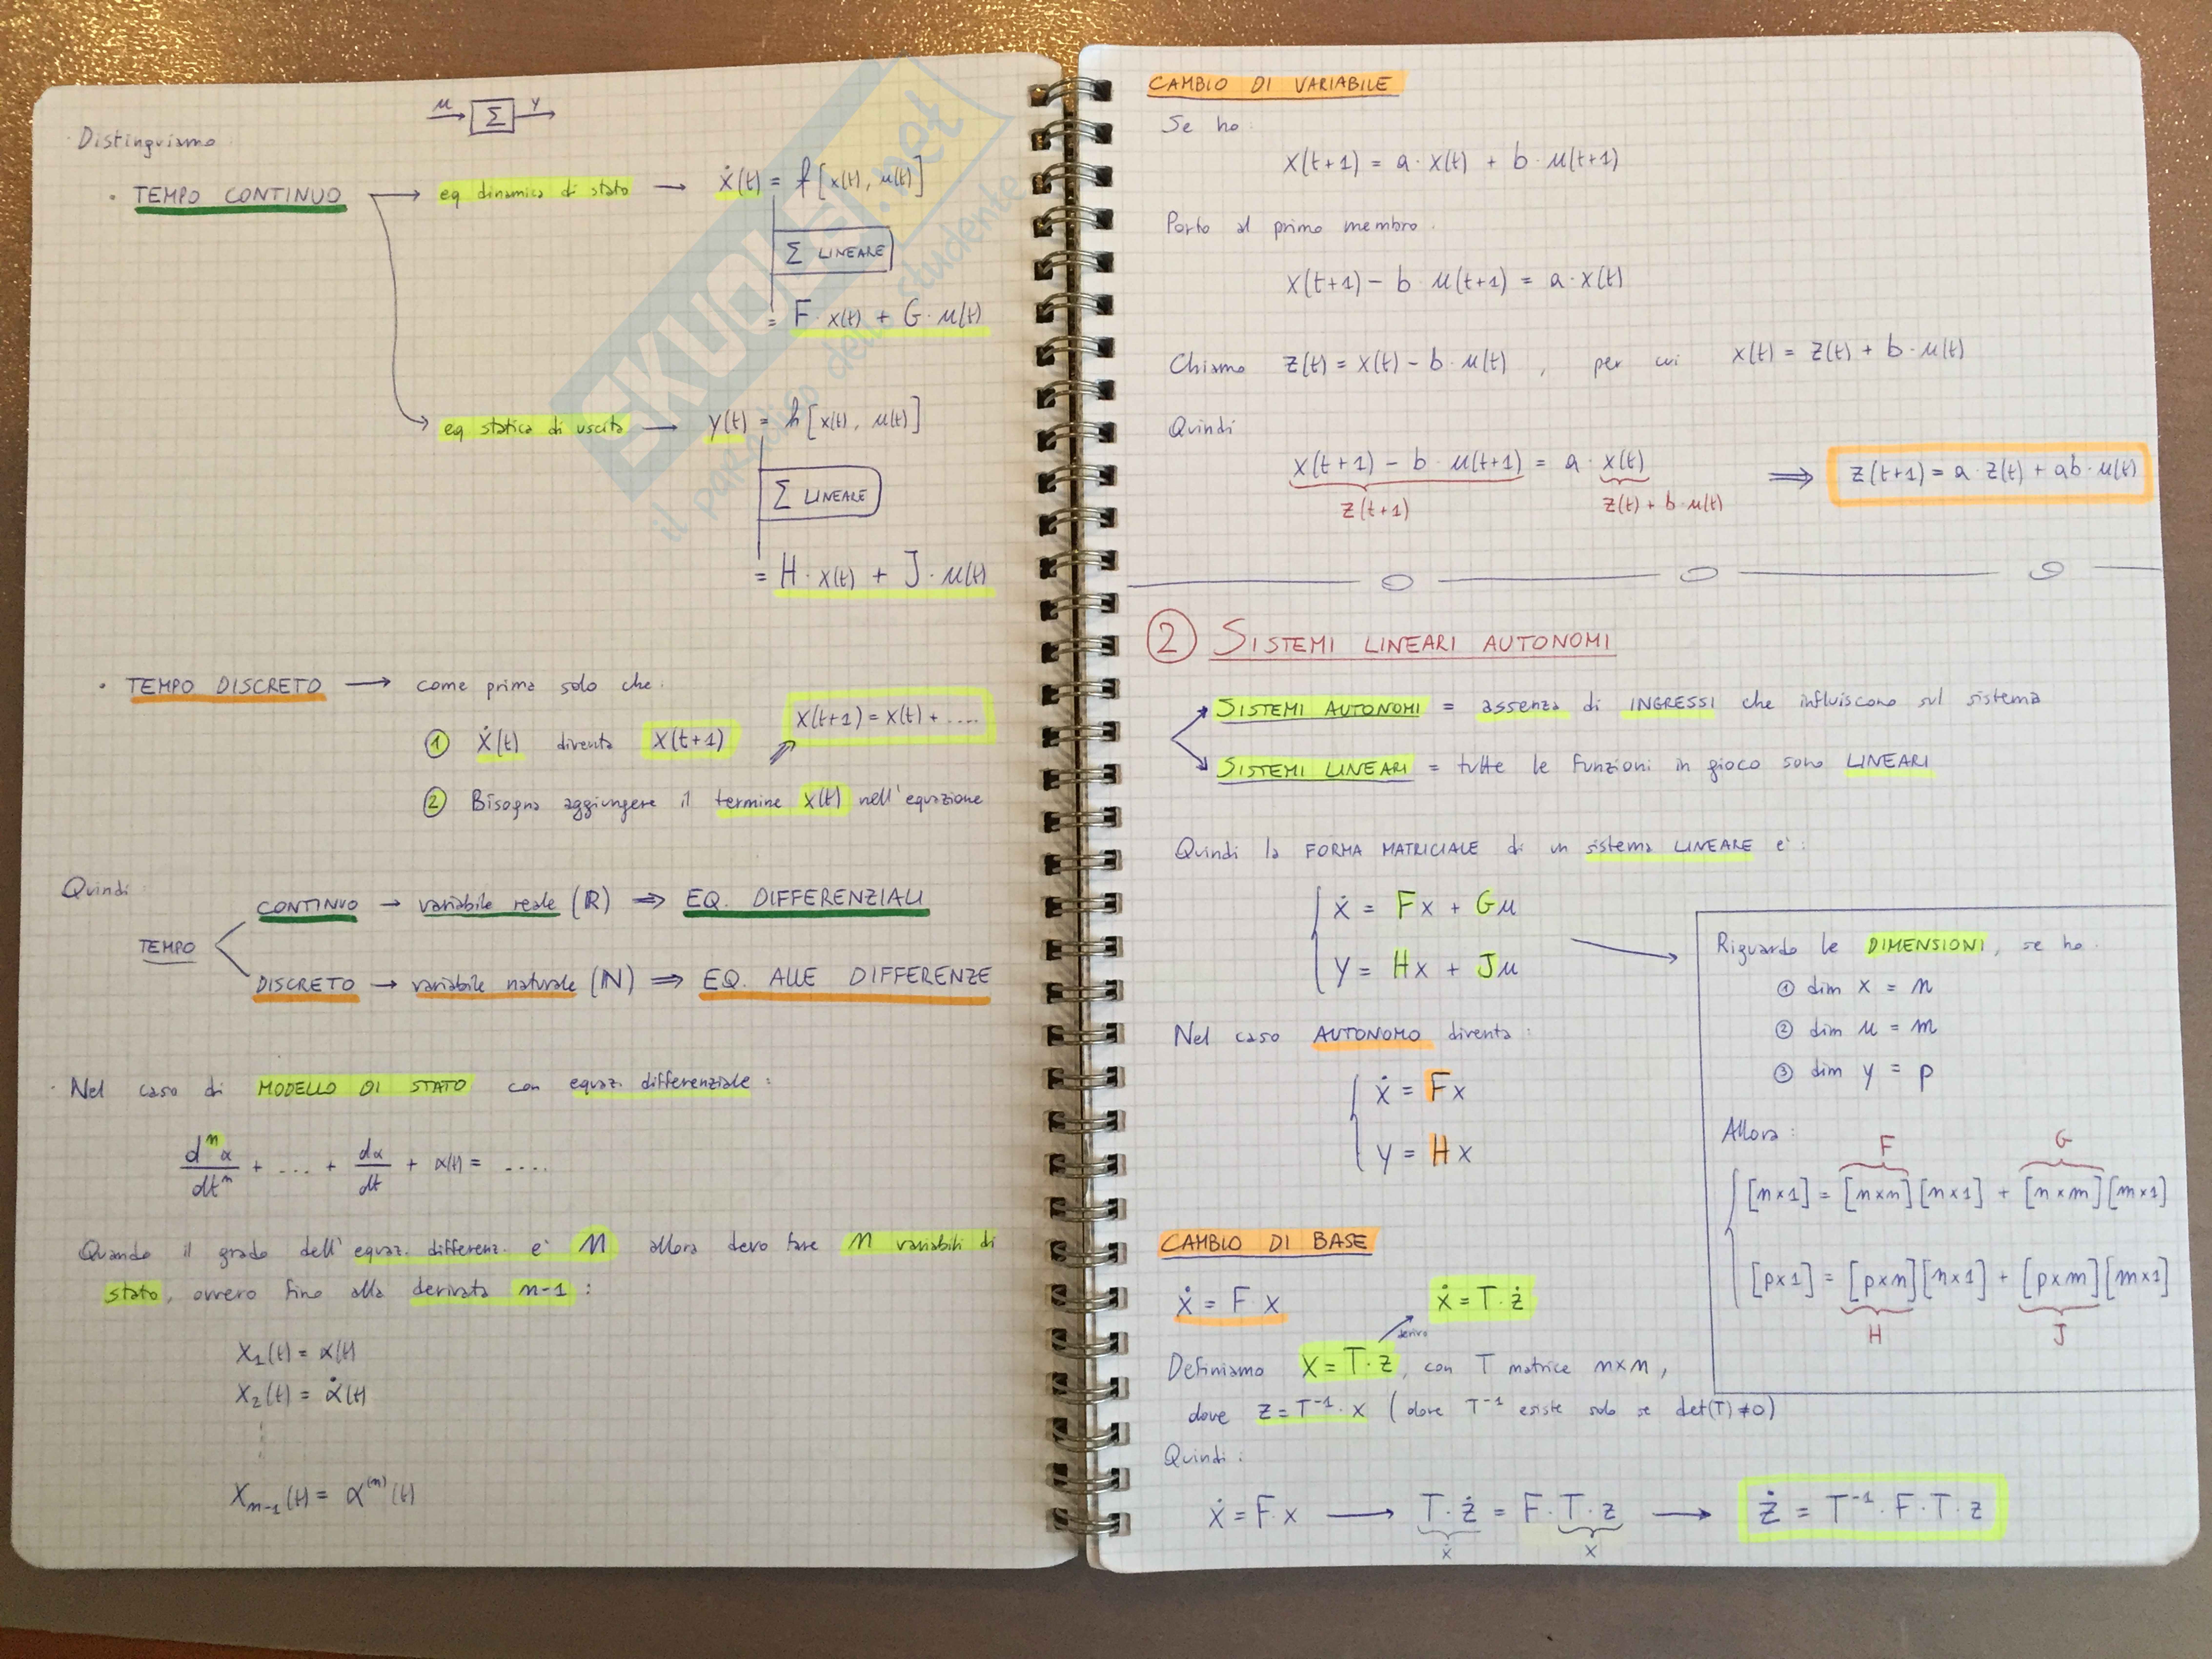 u Σ y
Distinguiamo
• TEMPO CONTINUO → eq dinamica di stato → ẋ(t) = f[x(t), u(t)]
Σ LINEARE
= F·x(t) + G·u(t)
eq statica di uscita → y(t) = h[x(t), u(t)]
Σ LINEARE
= H·x(t) + J·u(t)
• TEMPO DISCRETO → come prima solo che:
① Ẋ(t) diventa X(t+1) ⇒ X(t+1) = X(t) + ....
② Bisogna aggiungere il termine x(t) nell'equazione
Quindi:
CONTINUO → variabile reale (R) ⇒ EQ. DIFFERENZIALI
TEMPO
DISCRETO → variabile naturale (N) ⇒ EQ. ALLE DIFFERENZE
· Nel caso di MODELLO DI STATO con equaz. differenziale:
dⁿα/dtⁿ + ... + dα/dt + α(t) = ....
Quando il grado dell'equaz. differenz. e' n allora devo fare n variabili di
stato, ovvero fino alla derivata n-1:
X₁(t) = α(t)
X₂(t) = α̇(t)
Xₙ₋₁(t) = α⁽ⁿ⁾(t)
SKUOLA.net
il paradiso dello studente
CAMBIO DI VARIABILE
Se ho:
x(t+1) = a·x(t) + b·u(t+1)
Porto al primo membro:
x(t+1) - b·u(t+1) = a·x(t)
Chiamo z(t) = x(t) - b·u(t), per cui x(t) = z(t) + b·u(t)
Quindi
x(t+1) - b·u(t+1) = a·x(t) ⇒ z(t+1) = a·z(t) + ab·u(t)
z(t+1) z(t) + b·u(t)
② SISTEMI LINEARI AUTONOMI
SISTEMI AUTONOMI = assenza di INGRESSI che influiscono sul sistema
SISTEMI LINEARI = tutte le funzioni in gioco sono LINEARI
Quindi la FORMA MATRICIALE di un sistema LINEARE e':
ẋ = Fx + Gu
y = Hx + Ju
Riguardo le DIMENSIONI, se ho:
① dim x = n
② dim u = m
③ dim y = p
Allora:
F G
[n×1] = [n×n][n×1] + [n×m][m×1]
[p×1] = [p×n][n×1] + [p×m][m×1]
H J
Nel caso AUTONOMO diventa:
ẋ = Fx
y = Hx
CAMBIO DI BASE
ẋ = F·x ẋ = T·ż
derivo
Definiamo X = T·z, con T matrice n×n,
dove z = T⁻¹·x (dove T⁻¹ esiste solo se det(T)≠0)
Quindi:
ẋ = F·x → T·ż = F·T·z → ż = T⁻¹·F·T·z
ẋ x